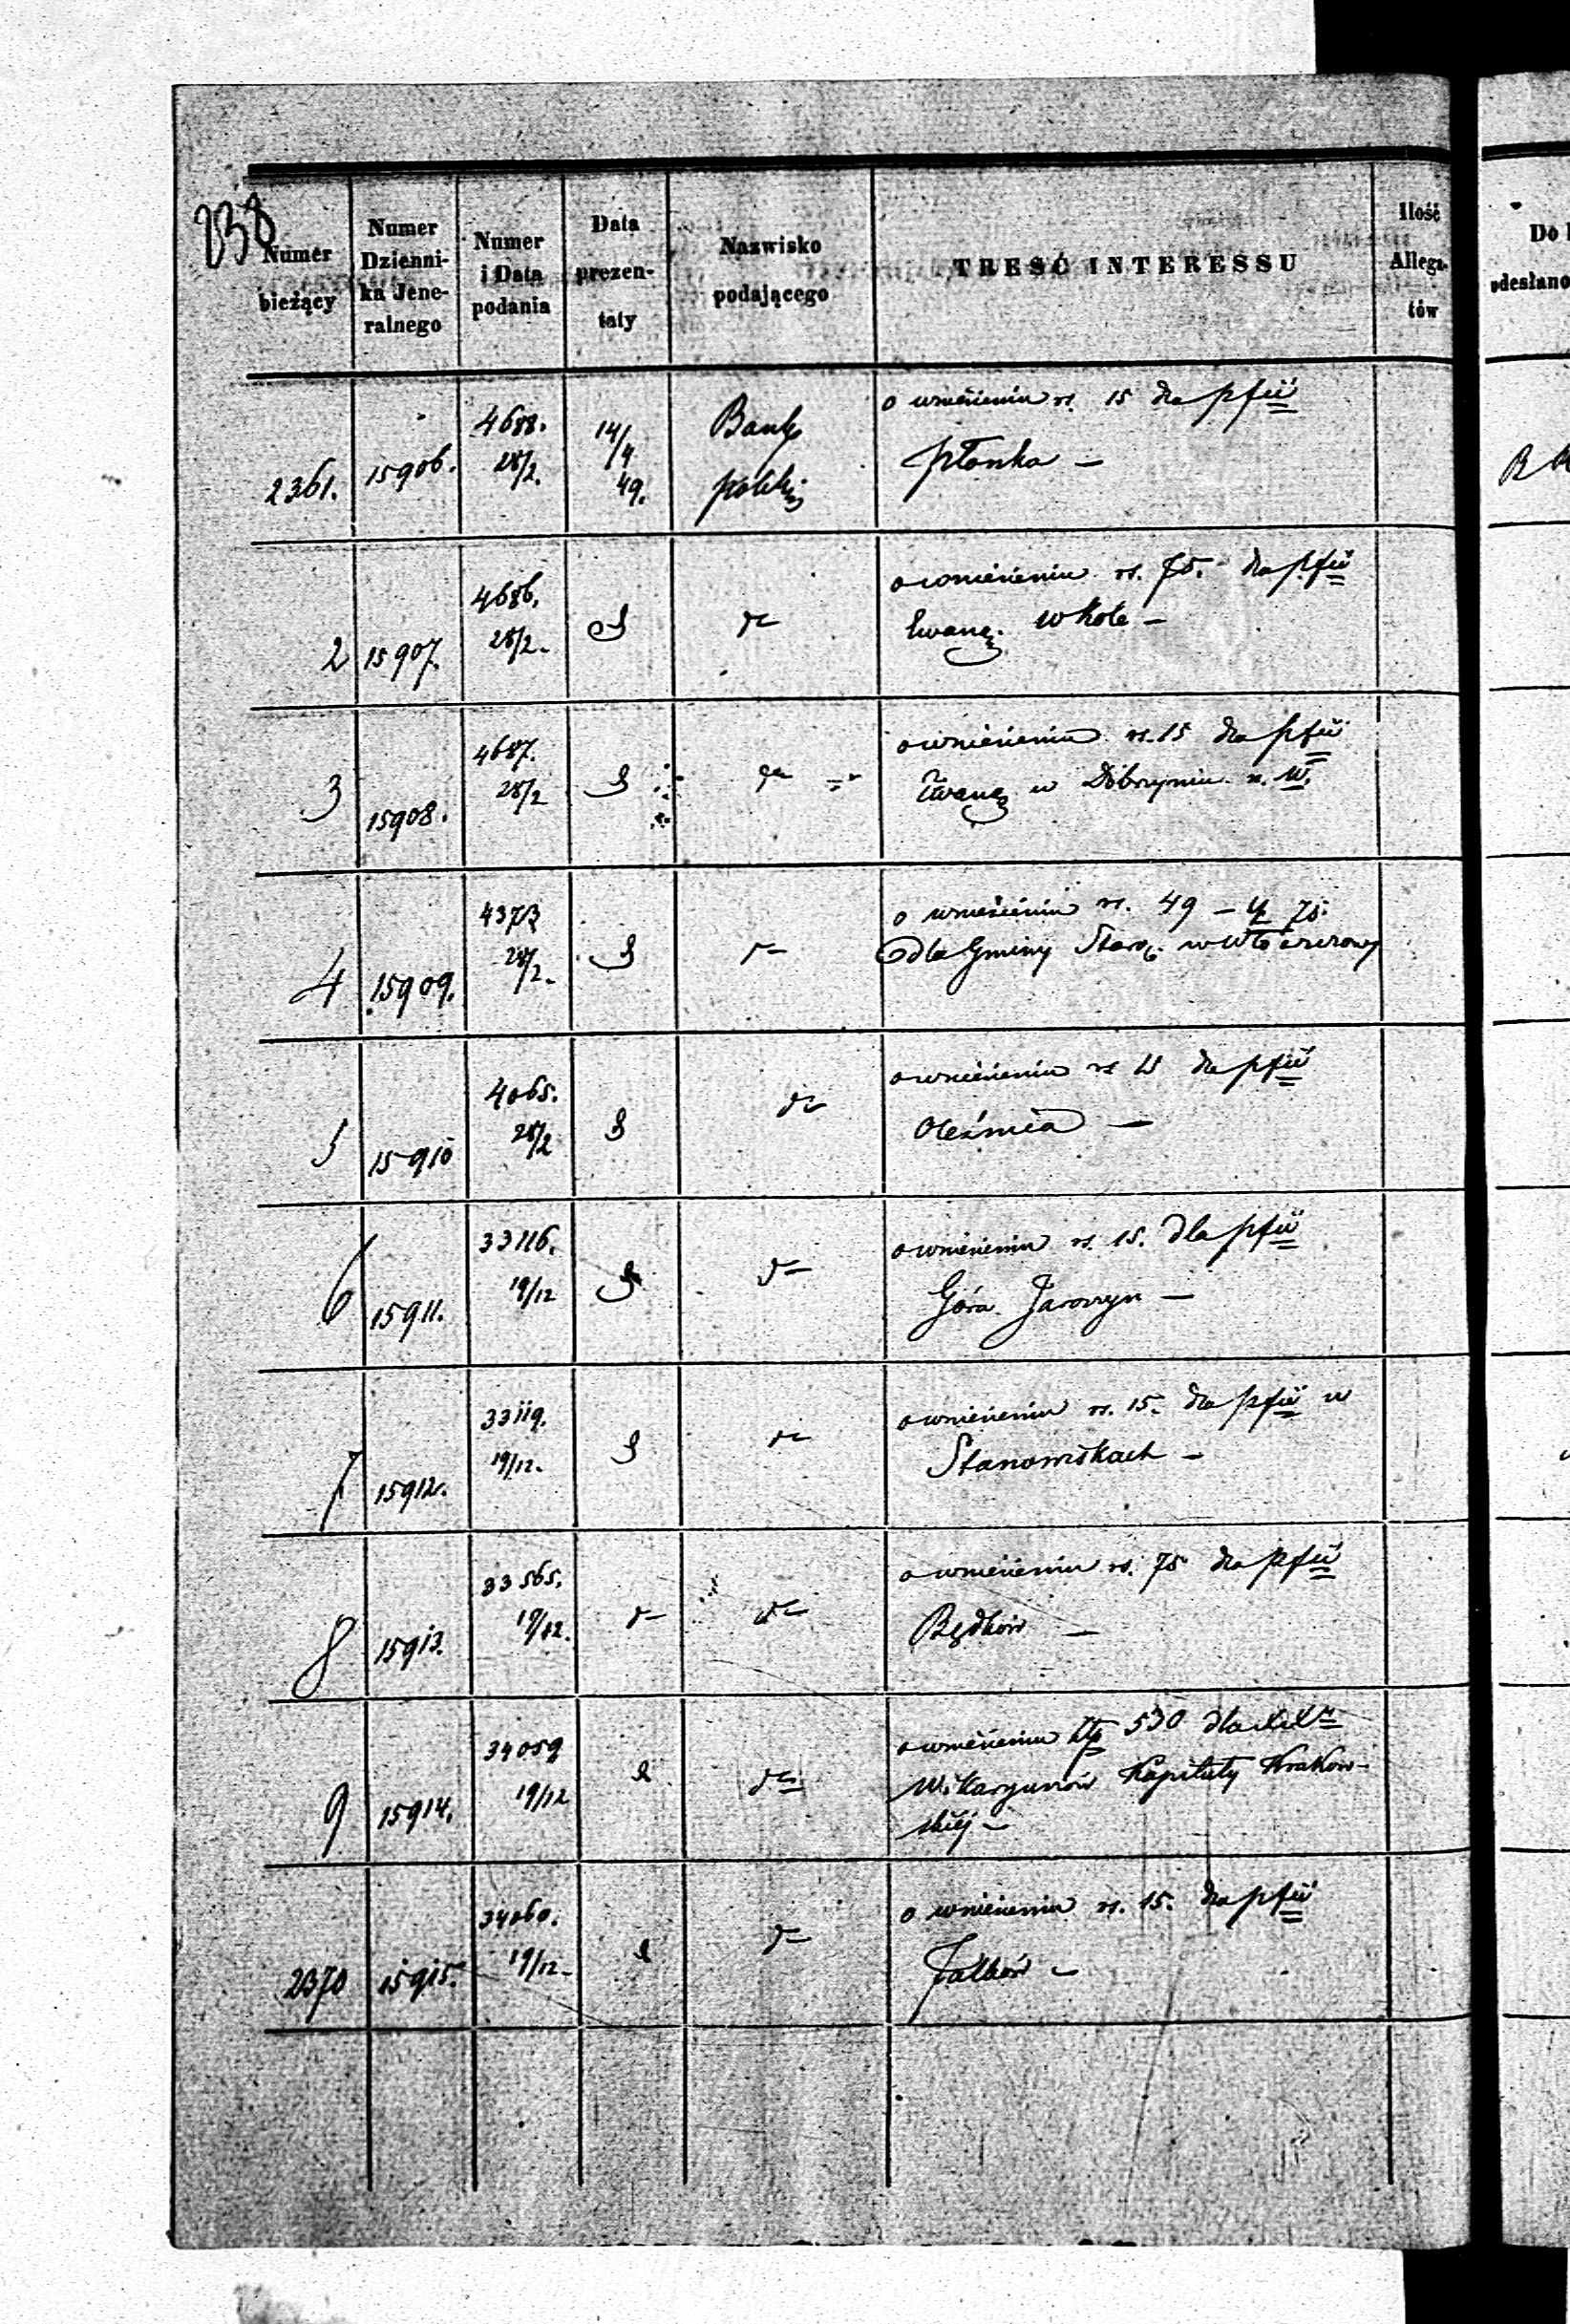 238
Numer bieżący
Numer Dzienni- ka Jene- ralnego
Numer i Data podania
Data prezen- taty
Nazwisko podającego
TREŚĆ INTERESSU
Ilość Allega- tów
Do
odesłano
2361. 15906. 4688. 28/2. 14/4 49. Bank polski o wniesieniu rs. 15 dla pfii
Płonka —
2 15907. 4686. 28/2. d o wniesieniu rs. 75. dla pfii
Ewang. w Kole —
3 15908. 4687. 28/2 d o wniesieniu rs. 15 dla pfii
Ewang w Dobrzyniu n. W.
4 15909. 28/2. d o wniesieniu rs. 49 — 75.
dla Gminy Staroz. w Włoszczowy
5 15910 4065. 28/2 d o wniesieniu rs 15 dla pfii
Oleśnica —
6 15911. 33116. 19/12 d o wniesieniu rs. 15. dla pfii
Góra Jaroszyn —
7 15912. 33119. 19/12. d o wniesieniu rs. 15. dla pfii w
Stanowiskach —
8 15913. 33565. 19/12. d o wniesieniu rs. 75 dla pfii
Będków —
9 15914. 34059 19/12 d o wniesieniu 530 dla
Wikaryuszów Kapituły Krakow-
skiej —
2370 15915. 34060. 19/12 d o wniesieniu rs. 15. dla pfii
Falków —